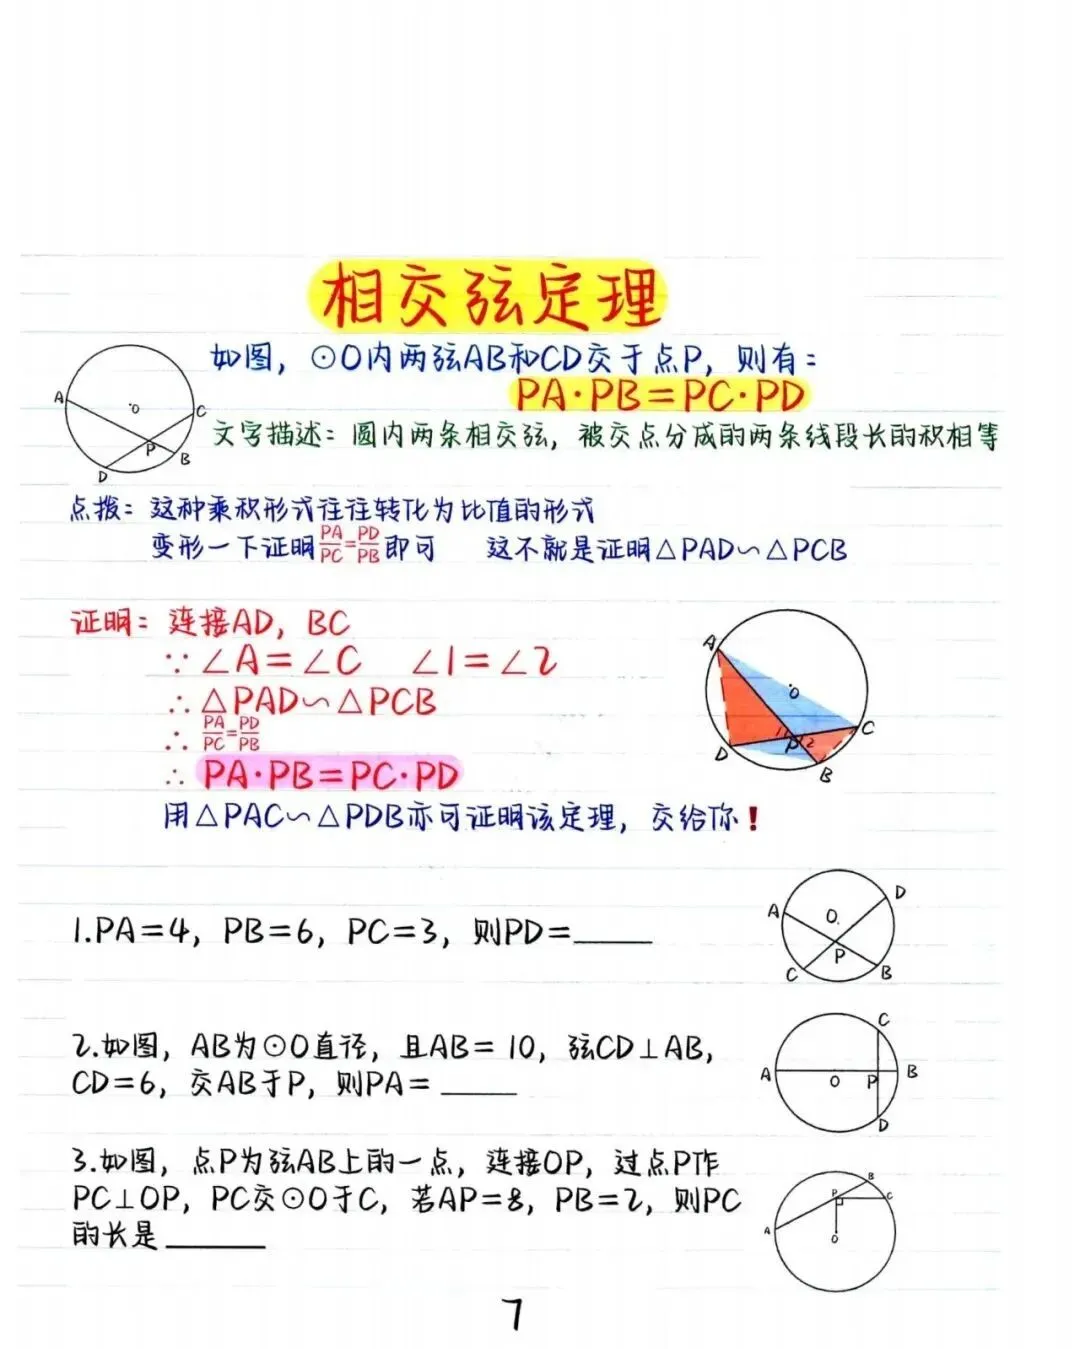 相交弦定理
如图，⊙O内两弦AB和CD交于点P，则有：
PA·PB=PC·PD
文字描述：圆内两条相交弦，被交点分成的两条线段长的积相等
A
O
C
P
B
D
点拨：这种乘积形式往往转化为比值的形式
变形一下证明PA/PC=PD/PB即可 这不就是证明△PAD∽△PCB
证明：连接AD，BC
∵∠A=∠C ∠1=∠2
∴△PAD∽△PCB
∴PA/PC=PD/PB
∴PA·PB=PC·PD
用△PAC∽△PDB亦可证明该定理，交给你！
A
O
C
1
P
2
D
B
1.PA=4，PB=6，PC=3，则PD=____
A
D
O
P
C
B
2.如图，AB为⊙O直径，且AB=10，弦CD⊥AB，
CD=6，交AB于P，则PA=____
C
A
O
P
B
D
3.如图，点P为弦AB上的一点，连接OP，过点P作
PC⊥OP，PC交⊙O于C，若AP=8，PB=2，则PC
的长是____
B
P
C
A
O
7